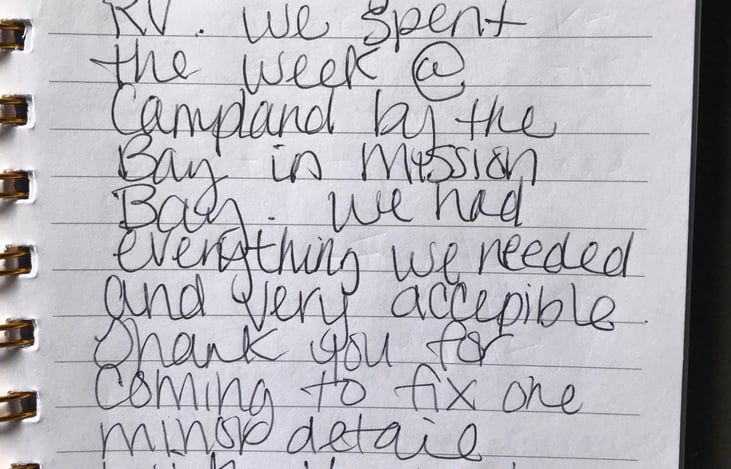 RV. We spent
the week @
Campland by the
Bay in Mission
Bay. We had
everything we needed
and very accepible.
Thank you for
coming to fix one
minor detail